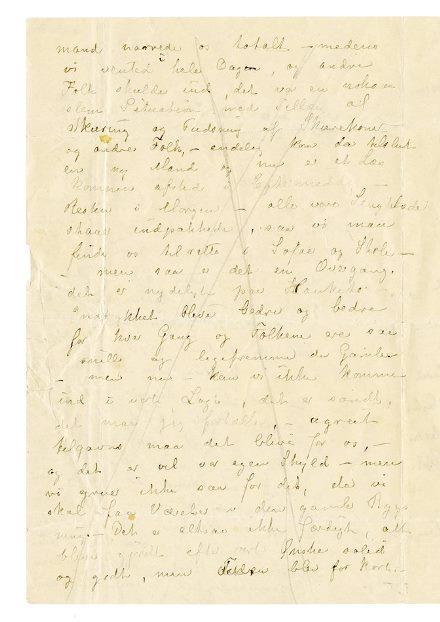 mand narrede os totalt – medens
vi ventede i hele Dagen, og andre
Folk skulde ind, det var en
slem Situation med Tillæg af
Skuring og Pudsning af
og andre Folk, – endelig kom da tilslut
en ny Mand og nu er et Læs
kommen afsted i Eftermiddag –
Resten i Morgen – alle vore
staar indpakkede, saa vi maa
finde os tilrette i Sofae og Stole –
– men saa er det en Overgang.
det er nydeligt paa
bliver bedre og bedre
for hver Gang og Folkene ere saa
snille og ligefremme de Gamle
– men nu – kan vi ikke komme
ind i vort Logi, det er sandt,
det maa jeg fortælle, –
maa det blive for os, –
og det er vel vor egen Skyld – men
vi gruer ikke saa for det, da vi
skal faa Værelser i den gamle
– Det er altsaa ikke færdigt, alt
blev gjort efter vort Ønske solid
og godt, men Tiden blev for kort. –